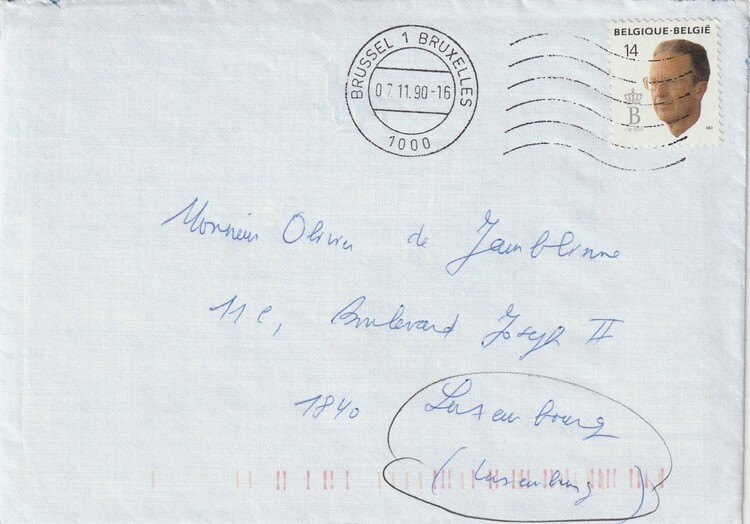 BRUSSEL 1 BRUXELLES
07.11.90-16
1000
BELGIQUE·BELGIË
14
B
Monsieur Olivier de Jamblinne
11e, Boulevard Joseph II
1840 Luxembourg
(Luxembourg)